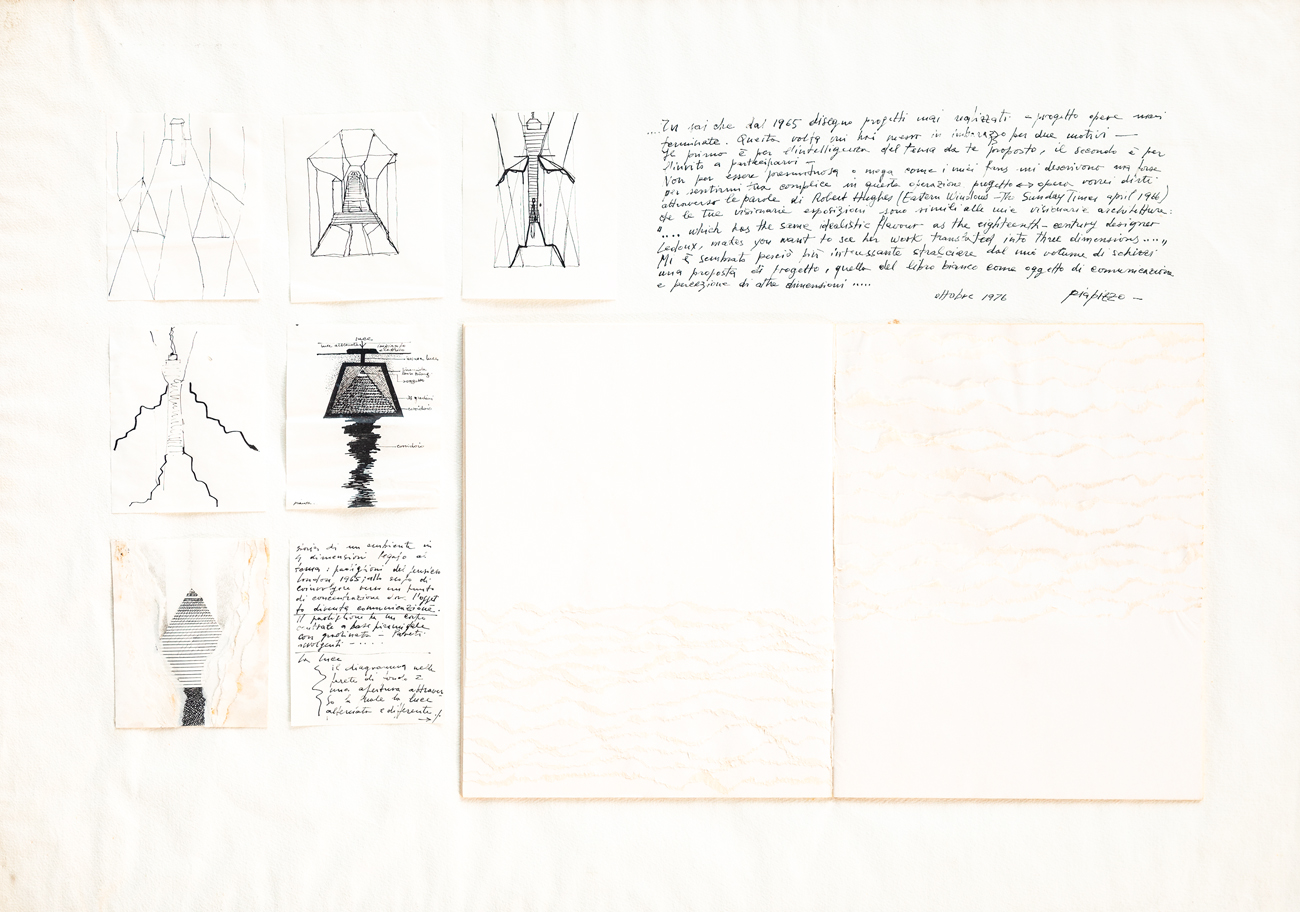 .... Tu sai che dal 1965 disegno progetti mai realizzati - progetto opere mai
terminate. Questa volta mi hai messo in imbarazzo per due motivi —
Il primo è per l'intelligenza del tema da te proposto, il secondo è per
l'invito a parteciparvi —
Non per essere presuntuosa o mega come i miei fans mi descrivono ma forse
per sentirmi tua complice in questa operazione progetto ↔ opera vorrei dirti
attraverso le parole di Robert Hughes (Eastern Windows - The Sunday Times april 1966)
che le tue visionarie esposizioni sono simili alle mie visionarie architetture:
".... which has the same idealistic flavour as the eighteenth-century designer
Ledoux, makes you want to see her work translated into three dimensions ...."
Mi è sembrato perciò più interessante stralciare dal mio volume di schizzi
una proposta di progetto, quella del libro bianco come oggetto di comunicazione
e percezione di altre dimensioni .....
ottobre 1976
luce
corridoio
di un ambiente in
4 dimensioni legato al
tema: padiglioni dei
London, 1965,
coinvolgere verso un punto
di concentrazione dove l'ogget
to diventa comunicazione.
Il padiglione ha un corpo
centrale a base piramidale
con gradinata - Pareti
avvolgenti - . . . .
La luce
il diagramma nelle
parete di fondo è
una apertura attraver
so la quale la luce